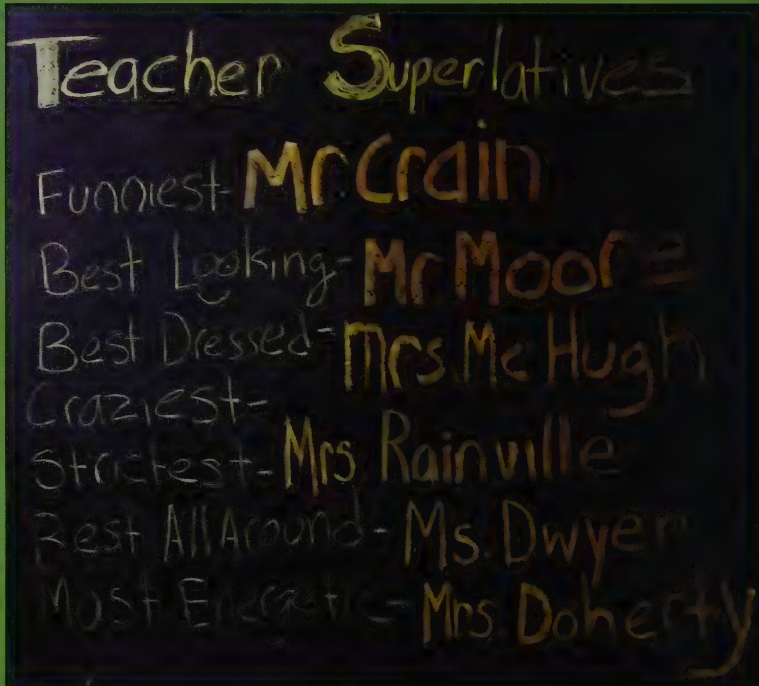 Teacher Superlatives
Funniest- Mr Crain
Best Looking- Mr Moore
Best Dressed- Mrs. McHugh
Craziest-
Strictest- Mrs. Rainville
Best All Around- Ms. Dwyer
Most Energetic- Mrs. Doherty